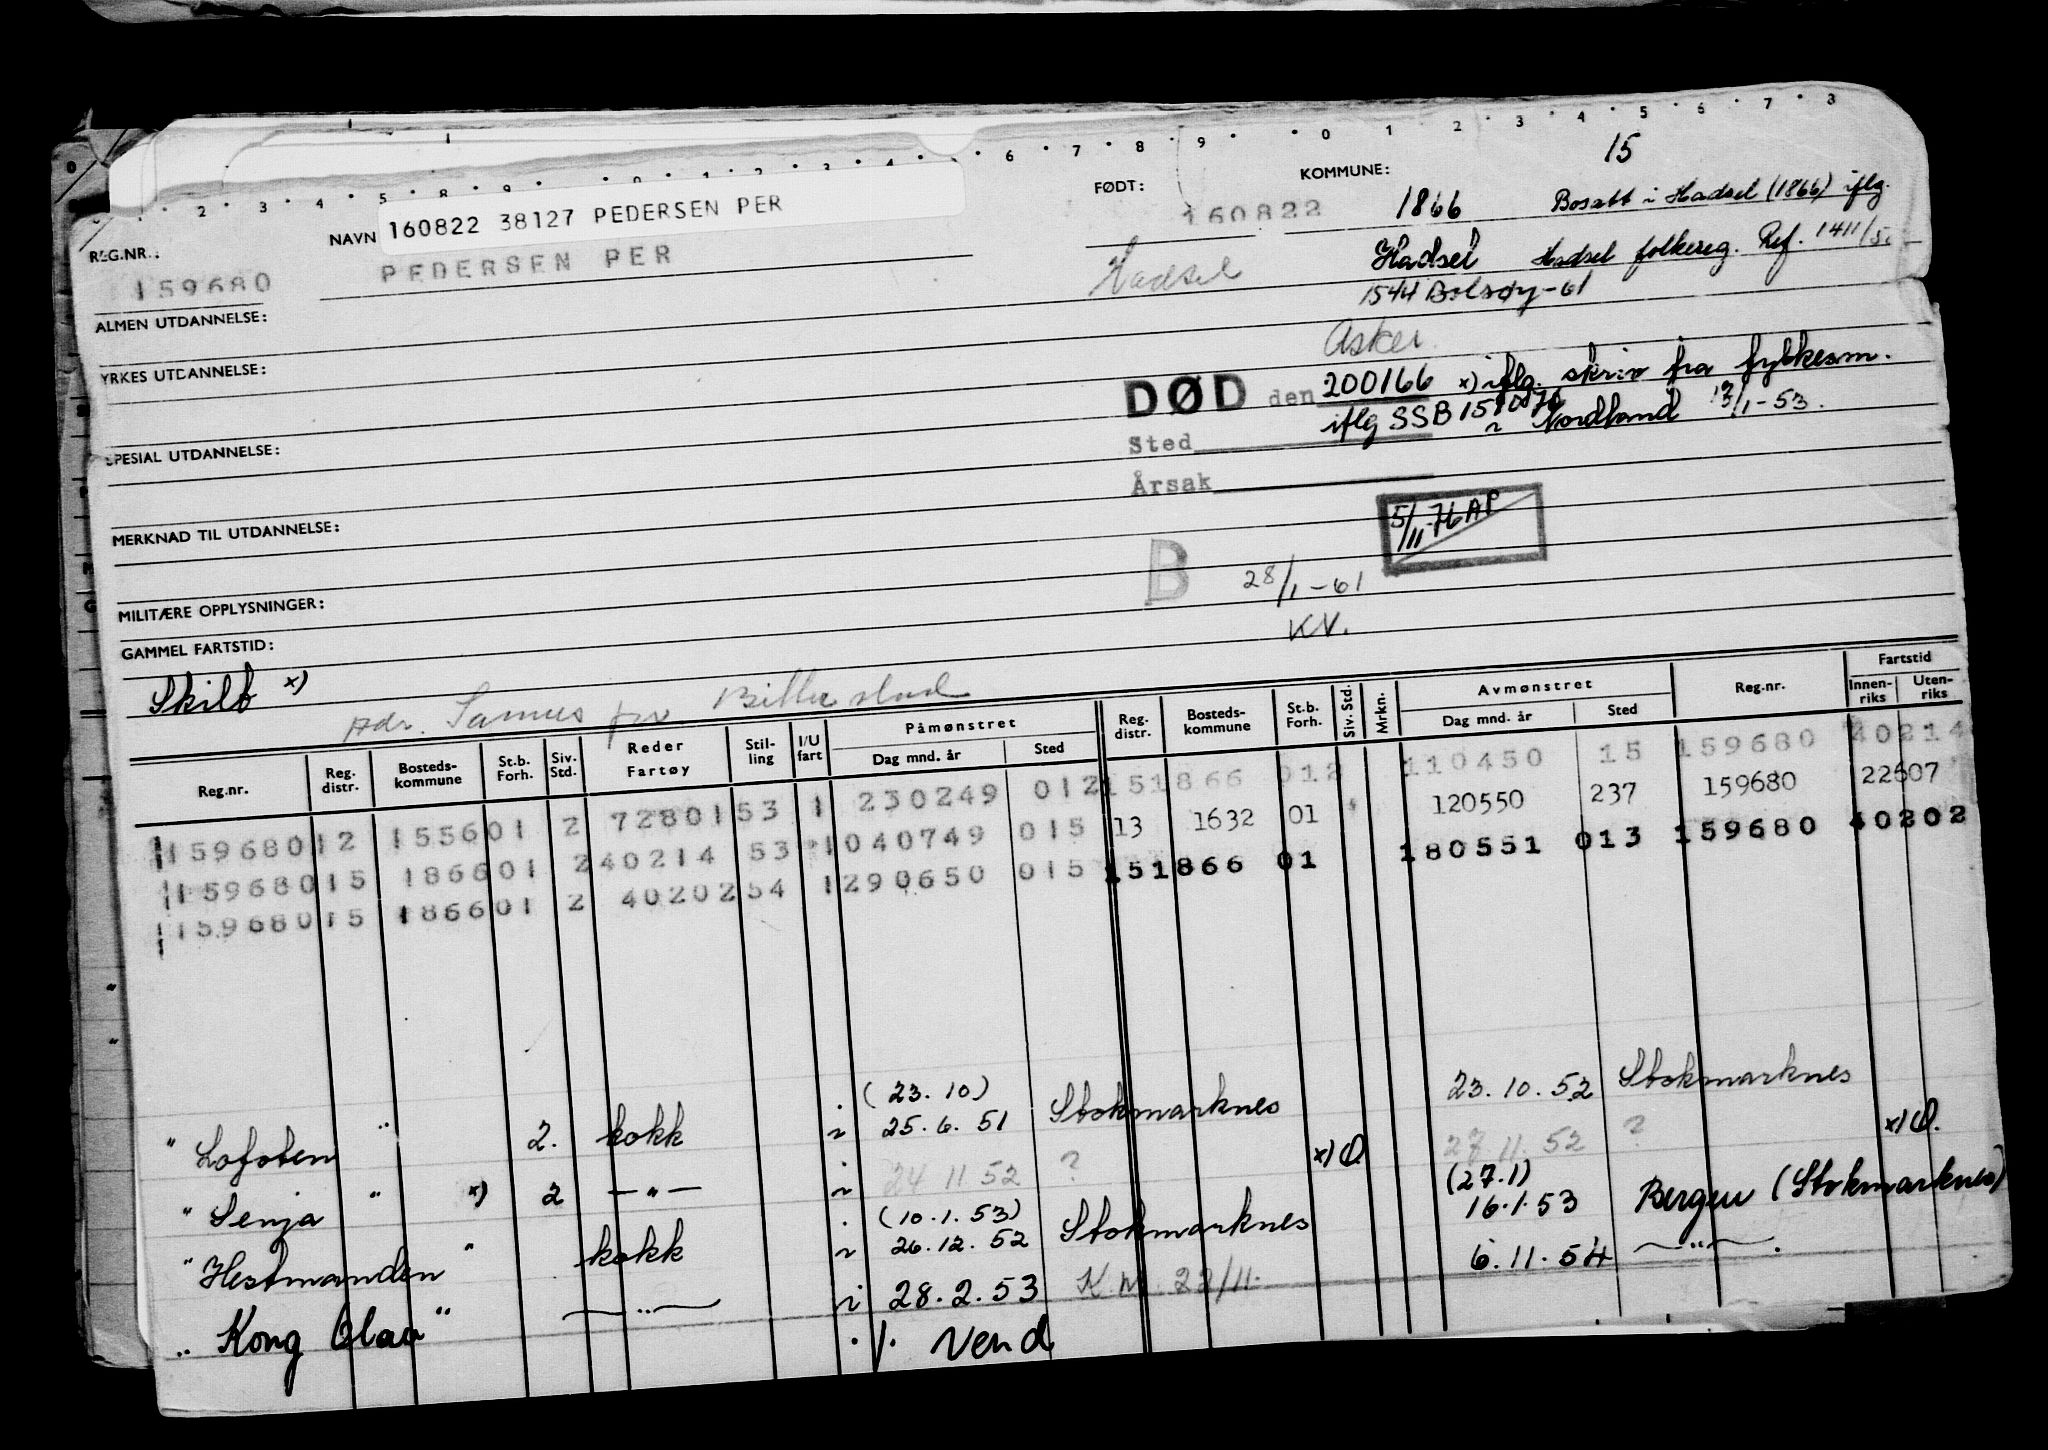 2 3 4 5 8 9 0 1 2 3 4 5 6 7 8 9 0 1 2 3 4 5 6 7 8
15
REG.NR.: NAVN 160822 38127 PEDERSEN PER FØDT: KOMMUNE:
159680 PEDERSEN PER 160822 1866 Bosatt i Hadsel (1866) iflg.
Hadsel Hadsel Hadsel folkereg. Ref. 1411/5
ALMEN UTDANNELSE: 1544 Bolsøy-61
Asker
YRKES UTDANNELSE:
DØD den 200166 x) iflg. skriv fra fylkesm.
iflg SSB i Nordland 13/1-53.
SPESIAL UTDANNELSE: Sted
Årsak
MERKNAD TIL UTDANNELSE:
5/11-76 AP
B 28/1-61
MILITÆRE OPPLYSNINGER:
KV.
GAMMEL FARTSTID:
Skilt x)
adr. Samus per Billerstad
Reg.nr. Reg. distr. Bosteds-kommune St.b. Forh. Siv. Std. Reder Fartøy Stil-ling I/U fart Påmønstret Dag mnd. år Sted Reg. distr. Bosteds-kommune St.b. Forh. Siv. Std. Mrkn. Avmønstret Dag mnd. år Sted Reg.nr. Fartstid Innen-riks Uten-riks
159680 12 1556 01 2 72801 53 1 230249 012 15 1866 012 110450 15 159680 40214
159680 15 1866 01 2 40214 53 1 040749 015 13 1632 01 120550 237 159680 22607
159680 15 1866 01 2 40202 54 1 290650 015 15 1866 01 180551 013 159680 40202
(23.10)
" Lofoten " 2. kokk i 25.6.51 Stokmarknes 23.10.52 Stokmarknes
" Senja " x) 2 — " — i 24 11 52 ? x) O. 27 11 52 ? x) O.
(10.1.53) (27.1)
" Hestmanden " kokk i 26.12.52 Stokmarknes 16.1.53 Bergen (Stokmarknes)
" Kong Olav " — " — i 28.2.53 K.M. 22/11. 6.11.54 — " —.
./. Vend